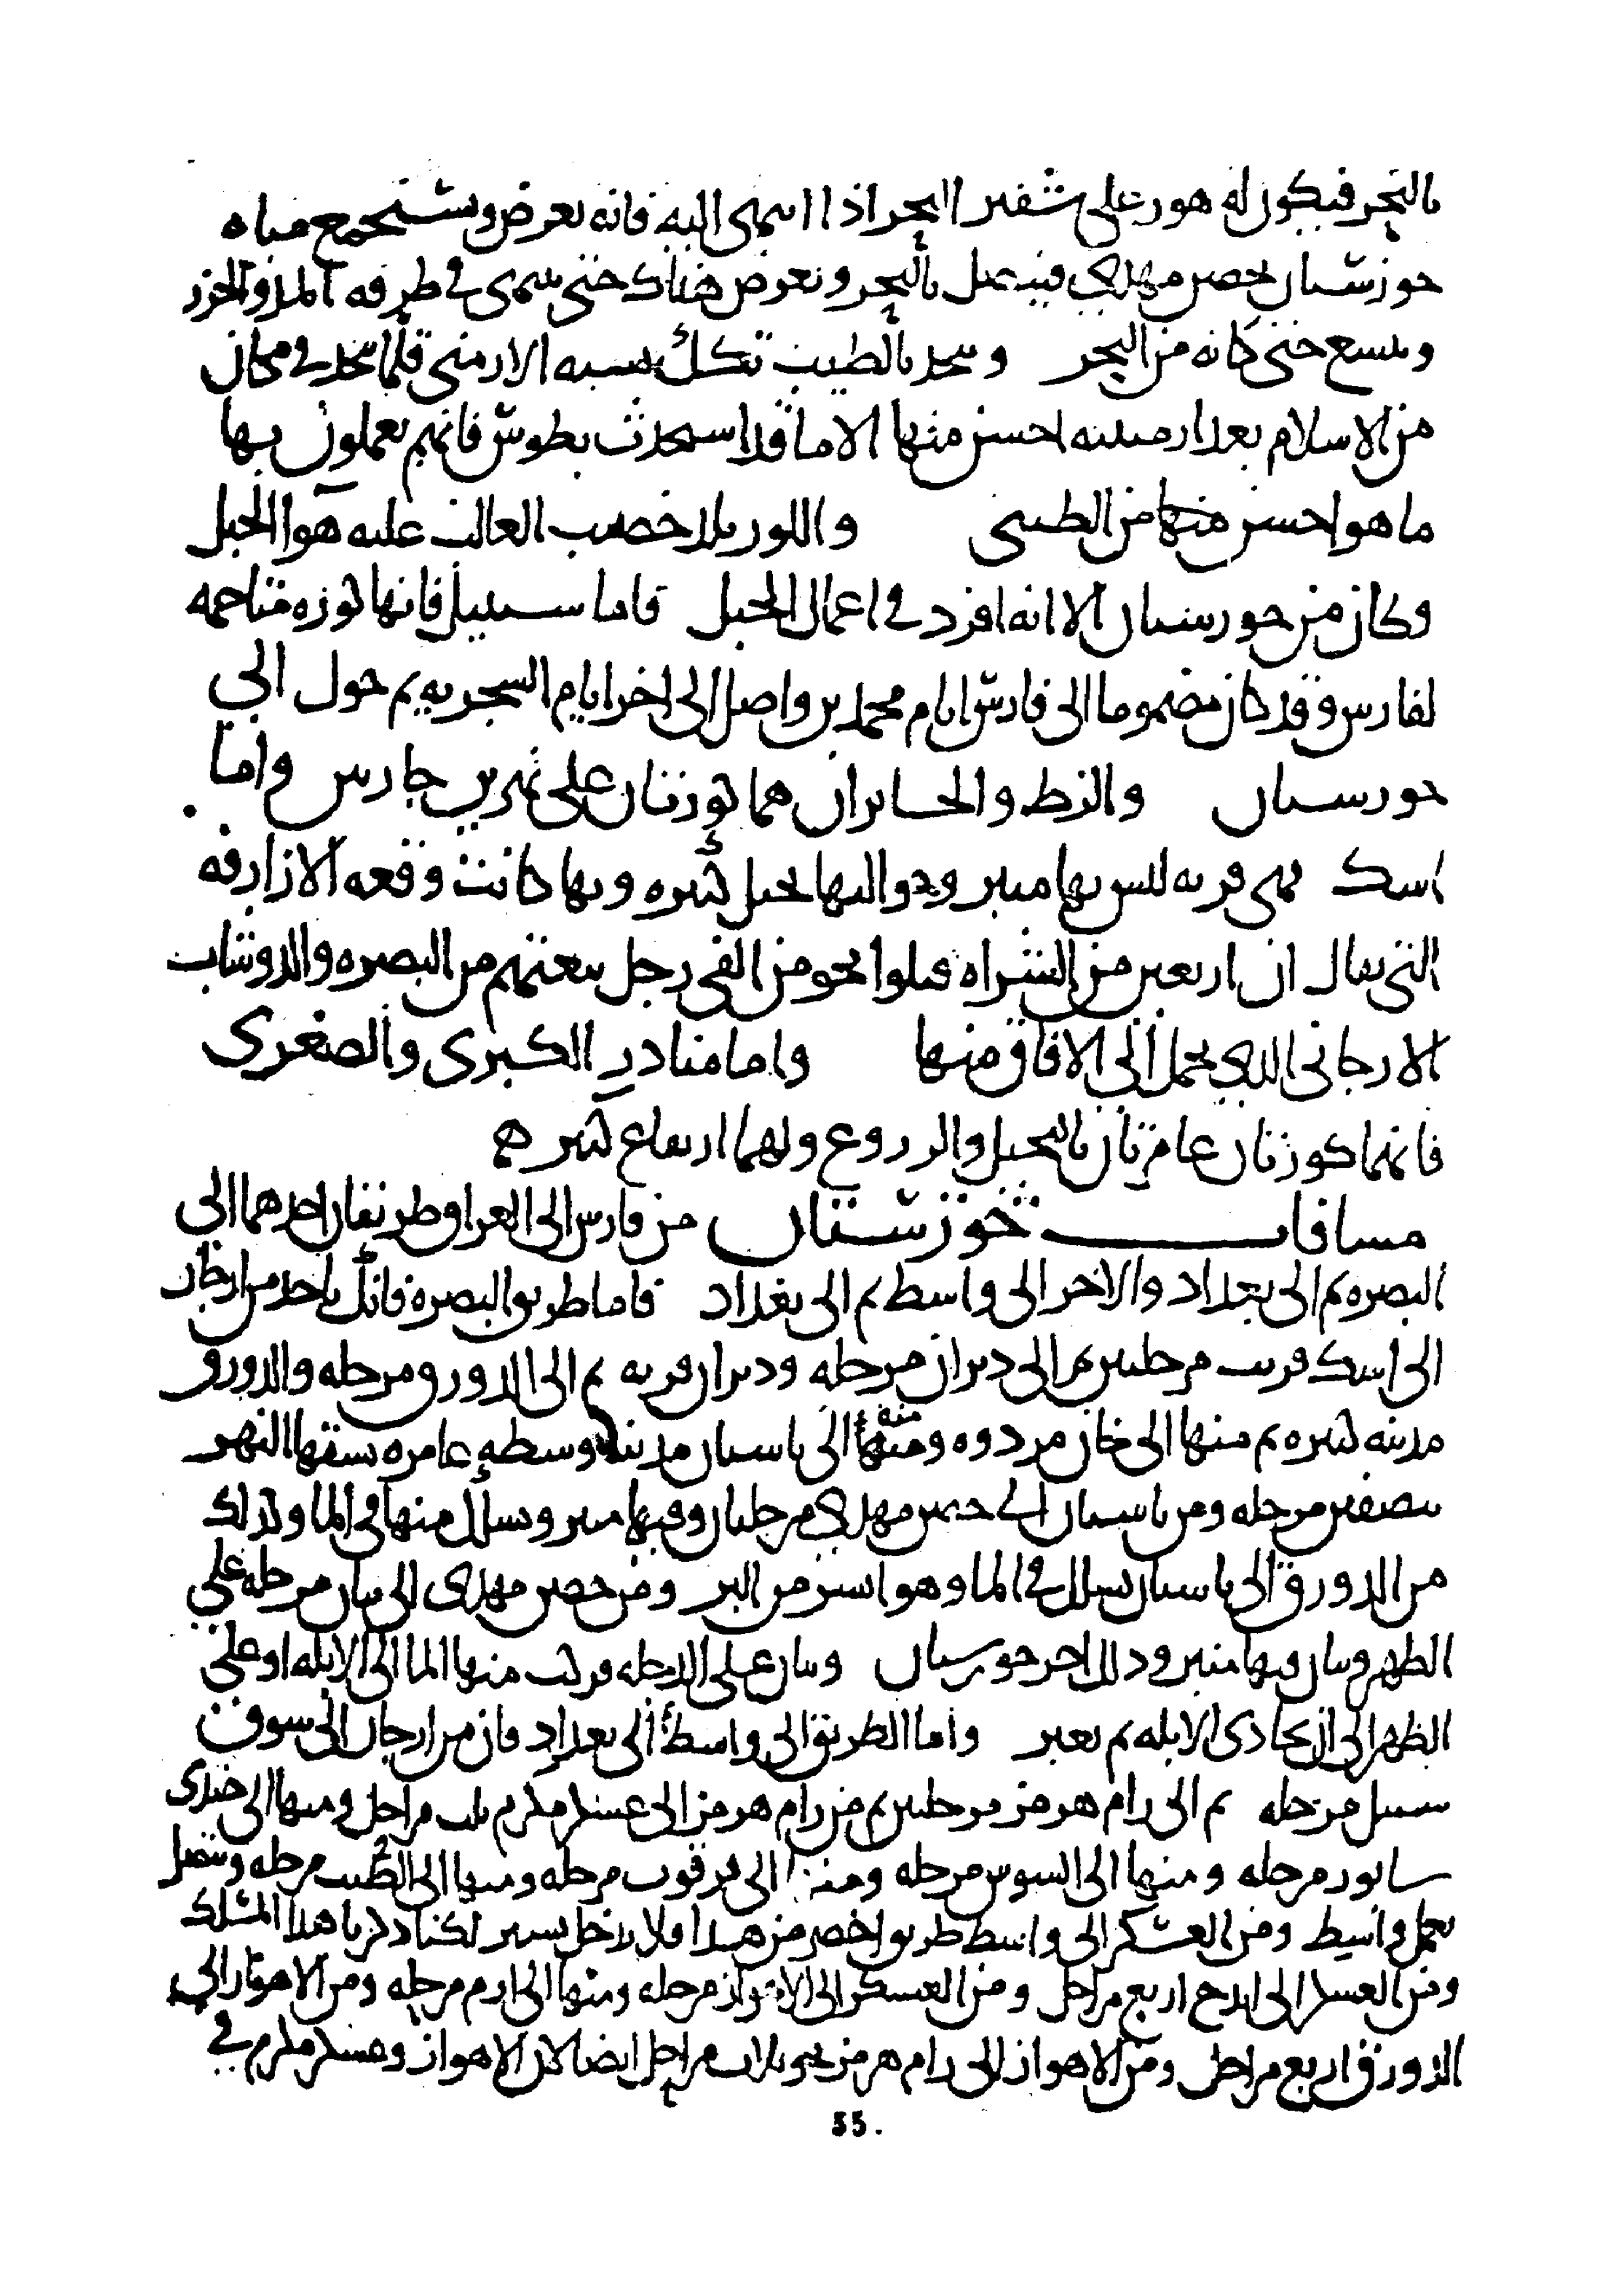 بالبحر فيكون له هور على شفير البحر اذا انتهى اليه فانه يعرض وتستجمع مياه
خوزستان بحصن مهدى فيتصل بالبحر ويعرض هناك حتى ينتهى في طرفه المد والجزر
ويتسع حتى كانه من البحر ويتخذ بالطيب تكك يشبه الارمنى قلما يتخذ في مكان
من الاسلام بعد ارمينيه احسن منها الا ما قد استحدث بطوس فانهم يعملون بها
ما هو احسن منها من الطيبى واللور بلد خصيب الغالب عليه هوا الجبل
وكان من خوزستان الا انه افرد في اعمال الجبل فاما سنبيل فانها كوره متاخمه
لفارس وقد كان مضموما الى فارس ايام محمد بن واصل الى اخر ايام السجزيه ثم حول الى
خوزستان والزط والخابران هما كورتان على نهرين جاريين واما
اسك فهى قريه ليس بها منبر وحواليها نخيل كثيره وبها كانت وقعه الازارقه
التى يقال ان اربعين من الشراه قتلوا نحو من الفى رجل تبعتهم من البصره والدوشاب
الارجانى الذى يحمل الى الافاق منها واما مناذر الكبرى والصغرى
فانهما كورتان عامرتان بالنخيل والزروع ولهما ارتفاع كثير ه
مسافات خوزستان من فارس الى العراق طريقان احدهما الى
البصره ثم الى بغداد والاخر الى واسط ثم الى بغداد فاما طريق البصره فانك تاخذ من ارجان
الى اسك قريه مرحلتين ثم الى ديران مرحله وديران قريه ثم الى الدورق مرحله والدورق
مدينه كبيره ثم منها الى خان مردوه ومنها منه الى باسيان مدينه وسطه عامره يشقها النهر
بنصفين مرحله ومن باسيان الى حصن مهدى مرحلتان وفيها منبر ويسلك منها في الما وكذلك
من الدورق الى باسيان يسلك في الما وهو ايسر من البر ومن حصن مهدى الى بيان مرحله على
الظهر وبيان وبها منبر وذلك اخر خوزستان وبيان على الدجله فركب منها الما الى الابله او على
الظهر الى ان يحاذى الابله ثم يعبر واما الطريق الى واسط الى بغداد فان من ارجان الى سوق
سنبيل مرحله ثم الى رام هرمز مرحلتين ثم من رام هرمز الى عسكر مكرم ثلث مراحل ومنها الى جندى
سابور مرحله ومنها الى السوس مرحله ومنها الى قرقوب مرحله ومنها الى الطيب مرحله ويتصل
بعمل واسط ومن العسكر الى واسط طريق اخصر من هذا فلا يدخل تستر لكنا ذكرنا هذا المسلك
ومن العسكر الى ايذج اربع مراحل ومن العسكر الى الاهواز مرحله ومنها الى ازم مرحله ومن الاهواز الى
الدورق اربع مراحل ومن الاهواز الى رام هرمز نحو ثلاث مراحل ايضا لان الاهواز وعسكر مكرم في
55.